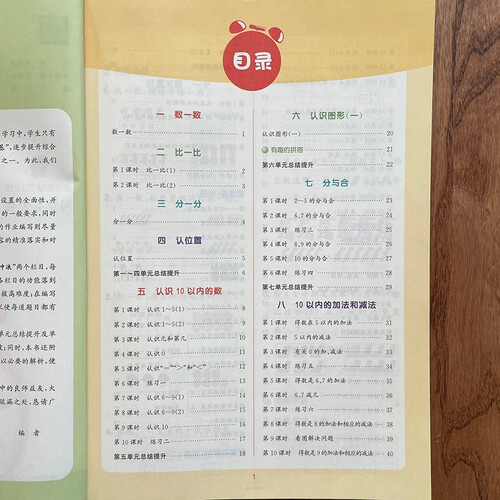 学习中，学生只有
卷”，逐步提升综合
之一。为此，我们
设置的全面性，并
的一般要求，同时
的作业编写到尽量
容的精准落实和对
冲法”两个栏目，每
各栏目的功能落到
拔高难度；在编写
使每道题目都有
单元总结提升及单
读；同时，本书还附
以必要的解析，便
中的良师益友，大
疏漏之处，恳请广
编 者
目录
一 数一数
数一数 1
二 比一比
第1课时 比一比(1) 2
第2课时 比一比(2) 3
三 分一分
分一分 4
四 认位置
认位置 5
第一~四单元总结提升 6
五 认识10以内的数
第1课时 认识1~5(1) 8
第2课时 认识1~5(2) 9
第3课时 认识几和第几 10
第4课时 认识0 11
第5课时 认识“=”“>”和“<” 12
第6课时 练习一 13
第7课时 认识6~9(1) 14
第8课时 认识6~9(2) 15
第9课时 认识10 16
第10课时 练习二 17
第五单元总结提升 18
六 认识图形(一)
认识图形(一) 20
有趣的拼搭 21
第六单元总结提升 22
七 分与合
第1课时 2~5的分与合 23
第2课时 6,7的分与合 24
第3课时 练习三 25
第4课时 8,9的分与合 26
第5课时 10的分与合 27
第6课时 练习四 28
第七单元总结提升 29
八 10以内的加法和减法
第1课时 得数在5以内的加法 31
第2课时 5以内的减法 32
第3课时 有关0的加、减法 33
第4课时 练习五 34
第5课时 得数是6,7的加法 35
第6课时 6,7减几 36
第7课时 练习六 37
第8课时 得数是8的加法和相应的减法 38
第9课时 看图解决问题 39
第10课时 得数是9的加法和相应的减法 40
1